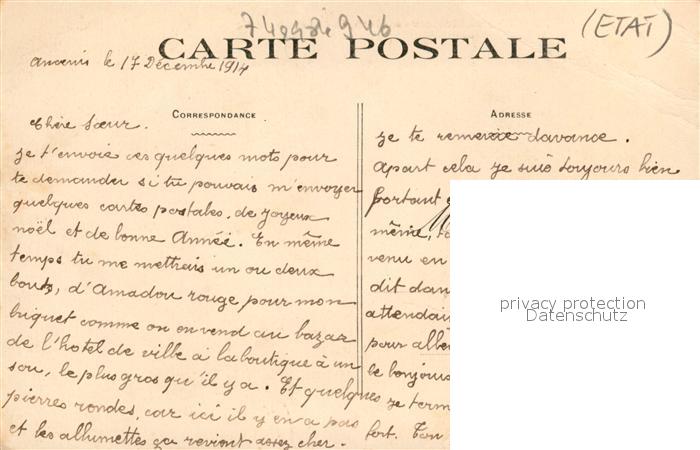 (ETAT)
CARTE POSTALE
Ancenis le 17 Décembre 1914
CORRESPONDANCE
Chère Sœur.
je t'envoie ces quelques mots pour
te demander si tu pouvais m'envoyer
quelques cartes postales, de joyeux
noël et de bonne Année. En même
temps tu me mettrais un ou deux
bouts, d'Amadou rouge pour mon
briquet comme on en vend au bazar
de l'hotel de ville à la boutique à un
sou, le plus gros qu'il y a. Et quelques
pierres rondes, car ici il y en a pas
et les allumettes ça revient assez cher.
ADRESSE
je te remercie davance.
Apart cela je suis toujours bien
portant
même,
venu en
dit dan
attendai
pour
le bonjour
je term
fort. Ton
privacy protection
Datenschutz